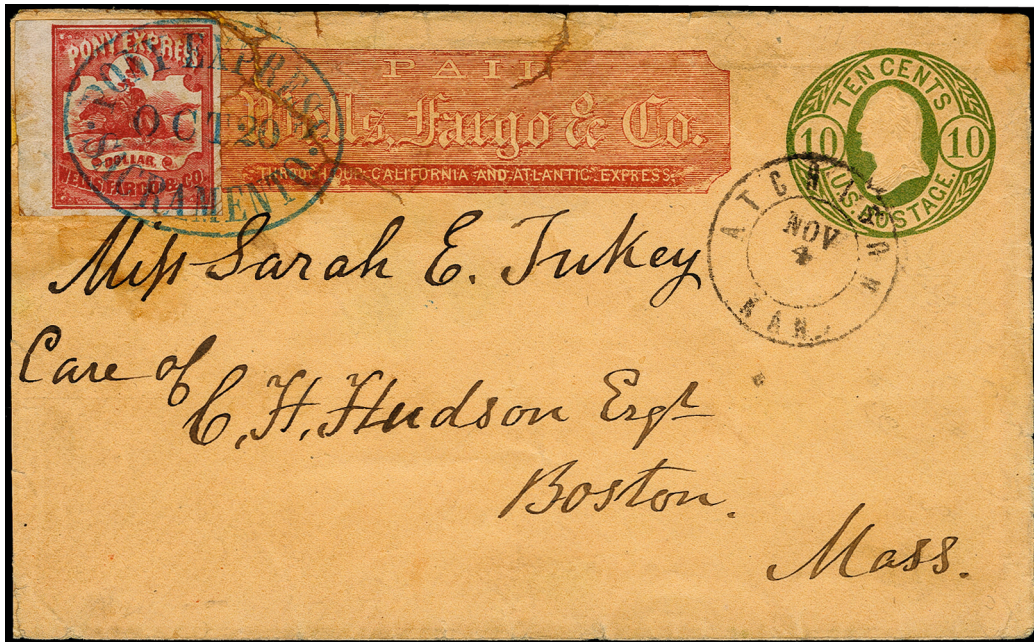 PONY EXPRESS
1
DOLLAR.
WELLS, FARGO & CO.
PONY EXPRESS
OCT 20
SACRAMENTO.
PAID
Wells, Fargo & Co.
THROUGH OUR CALIFORNIA AND ATLANTIC EXPRESS.
TEN CENTS
10 10
U.S. POSTAGE.
ATCHISON
NOV
4
KAN.
Miss Sarah E. Tukey
Care of
C. H. Hudson Esqr
Boston.
Mass.